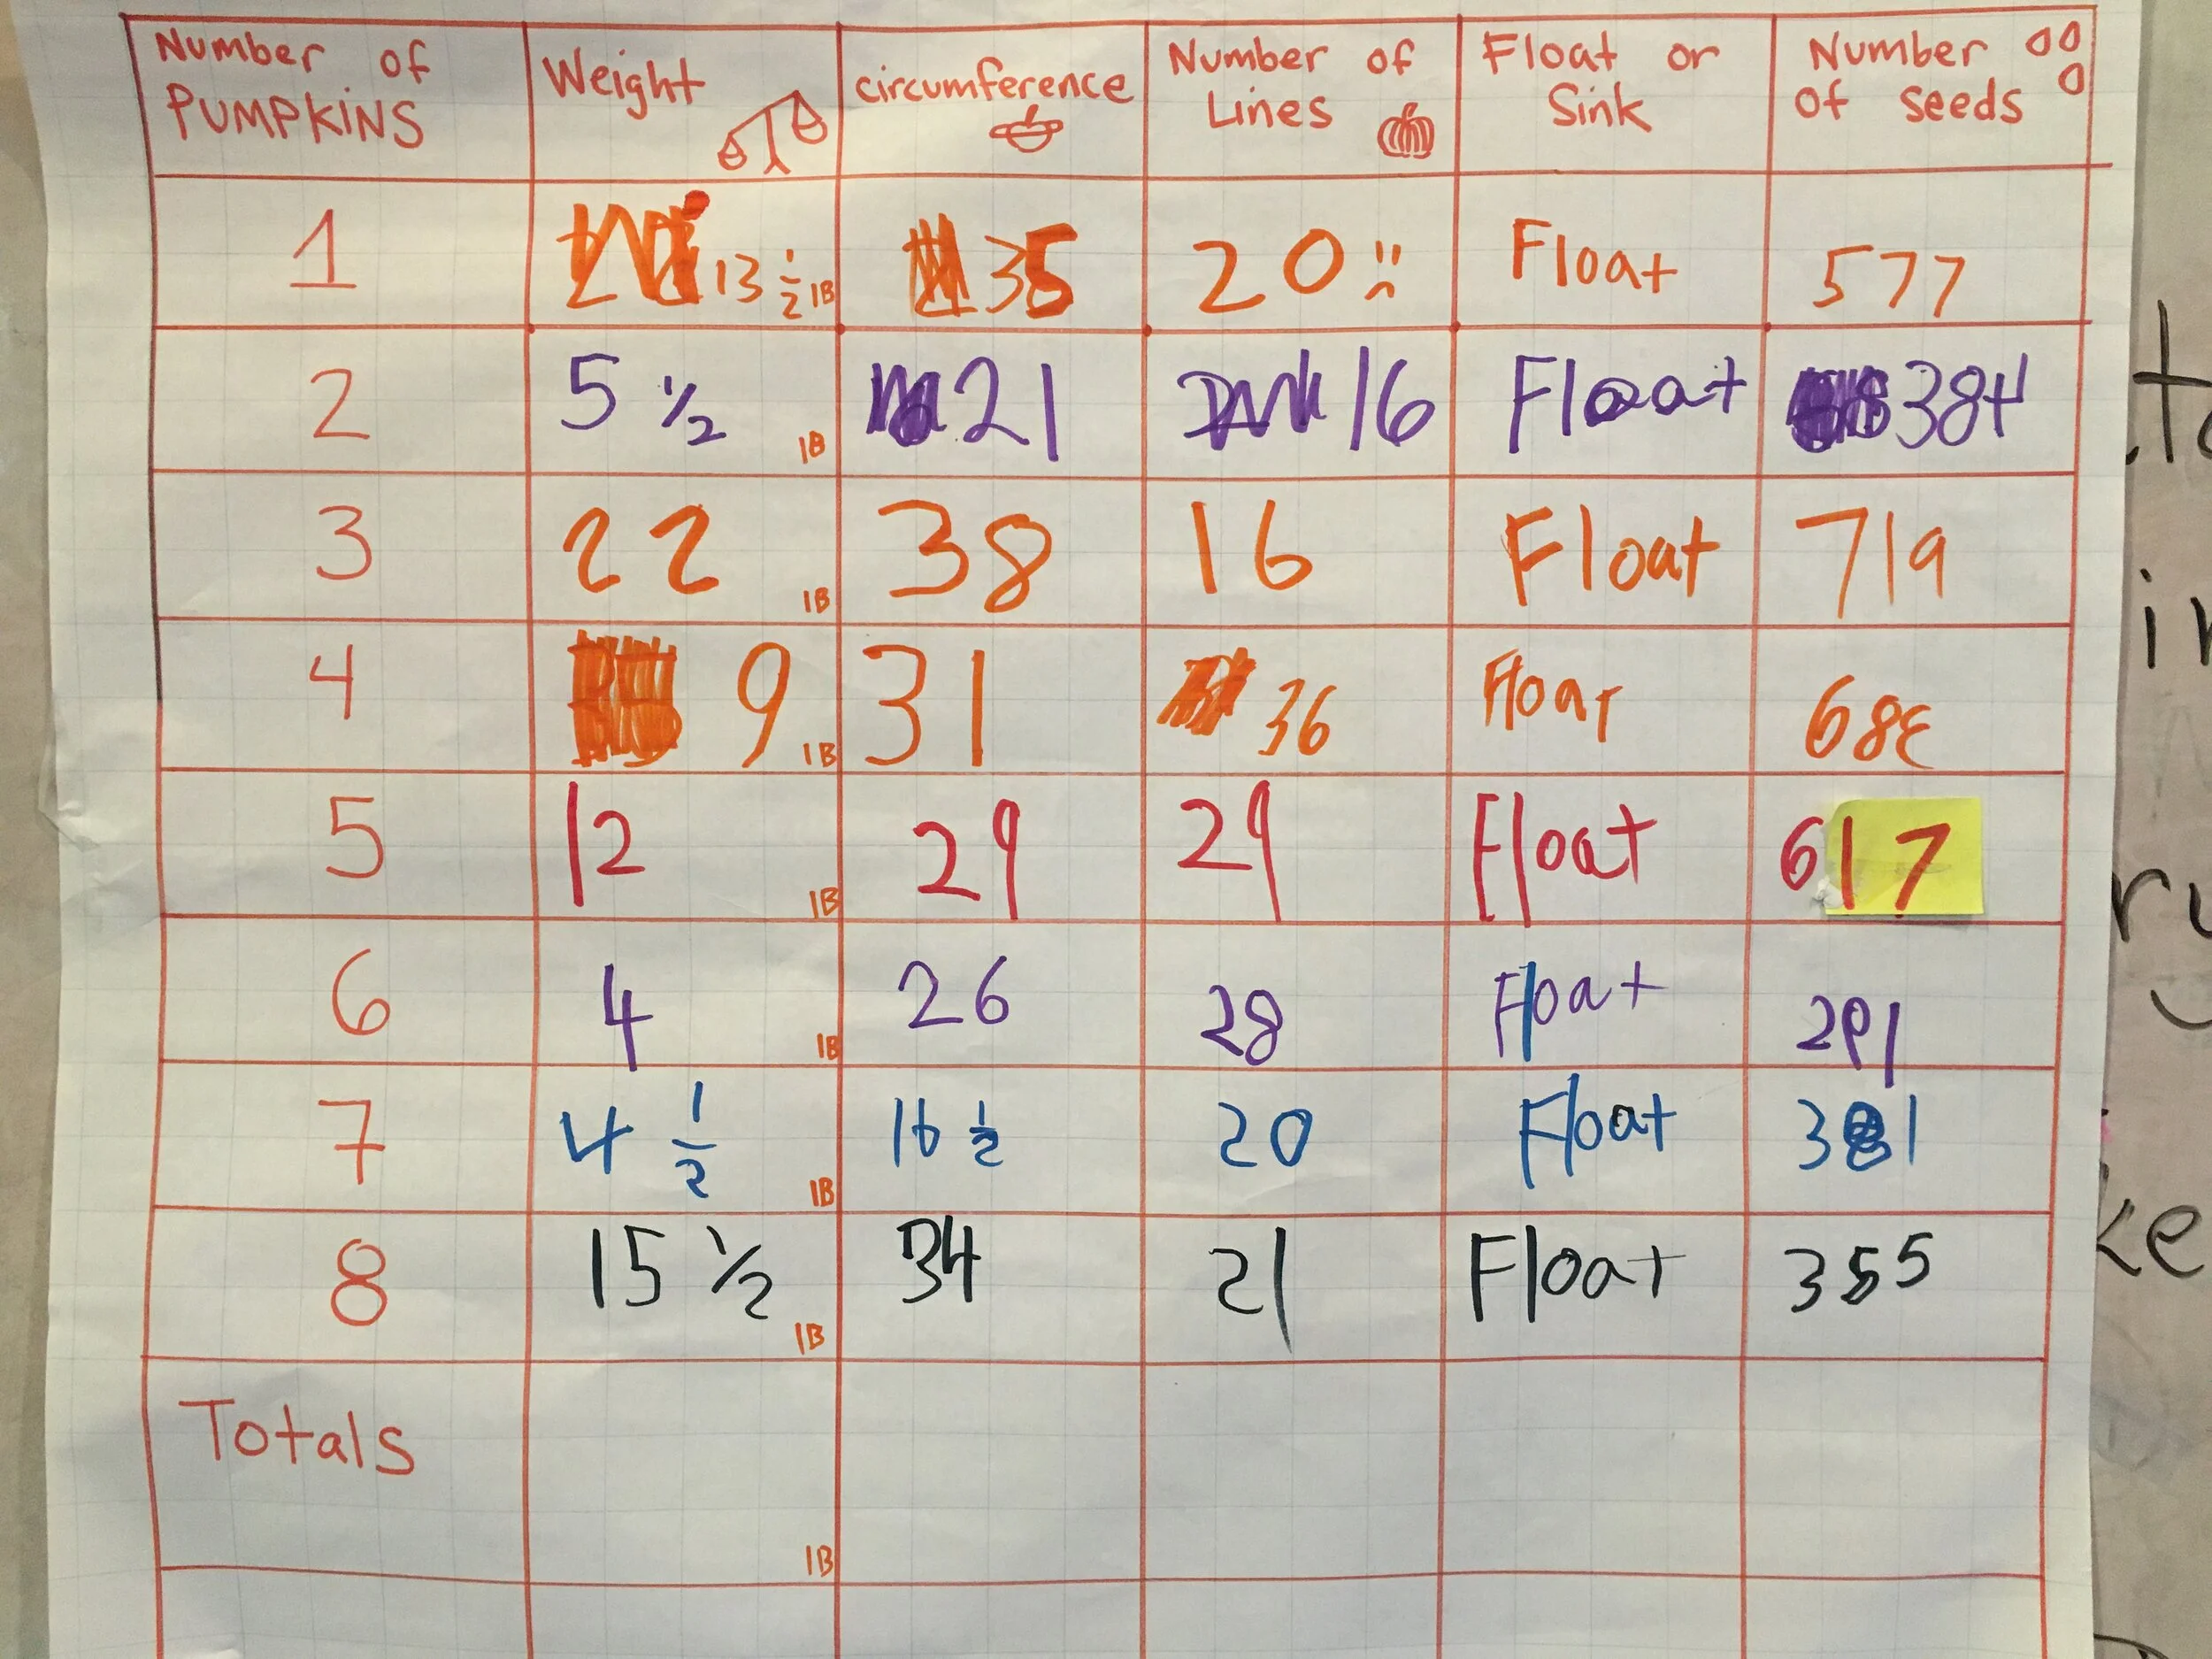 Number of PUMPKINS
Weight
circumference
Number of Lines
Float or Sink
Number of seeds
1 13 1/2 lB 35 20 Float 577
2 5 1/2 lB 21 16 Float 384
3 22 lB 38 16 Float 719
4 9 lB 31 36 Float
5 12 lB 29 29 Float 617
6 4 lB 26 28 Float 291
7 4 1/2 lB 16 1/2 20 Float 381
8 15 1/2 lB 34 21 Float 355
Totals lB